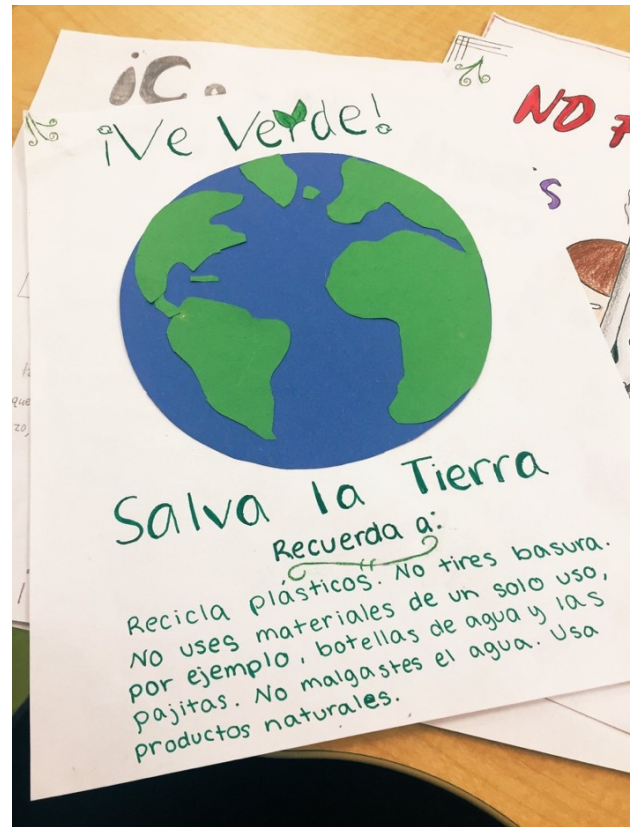 ¡C.
NO
¡Ve Verde!
s
Salva la Tierra
Recuerda a:
Recicla plásticos. No tires basura.
No uses materiales de un solo uso,
por ejemplo, botellas de agua y las
pajitas. No malgastes el agua. Usa
productos naturales.